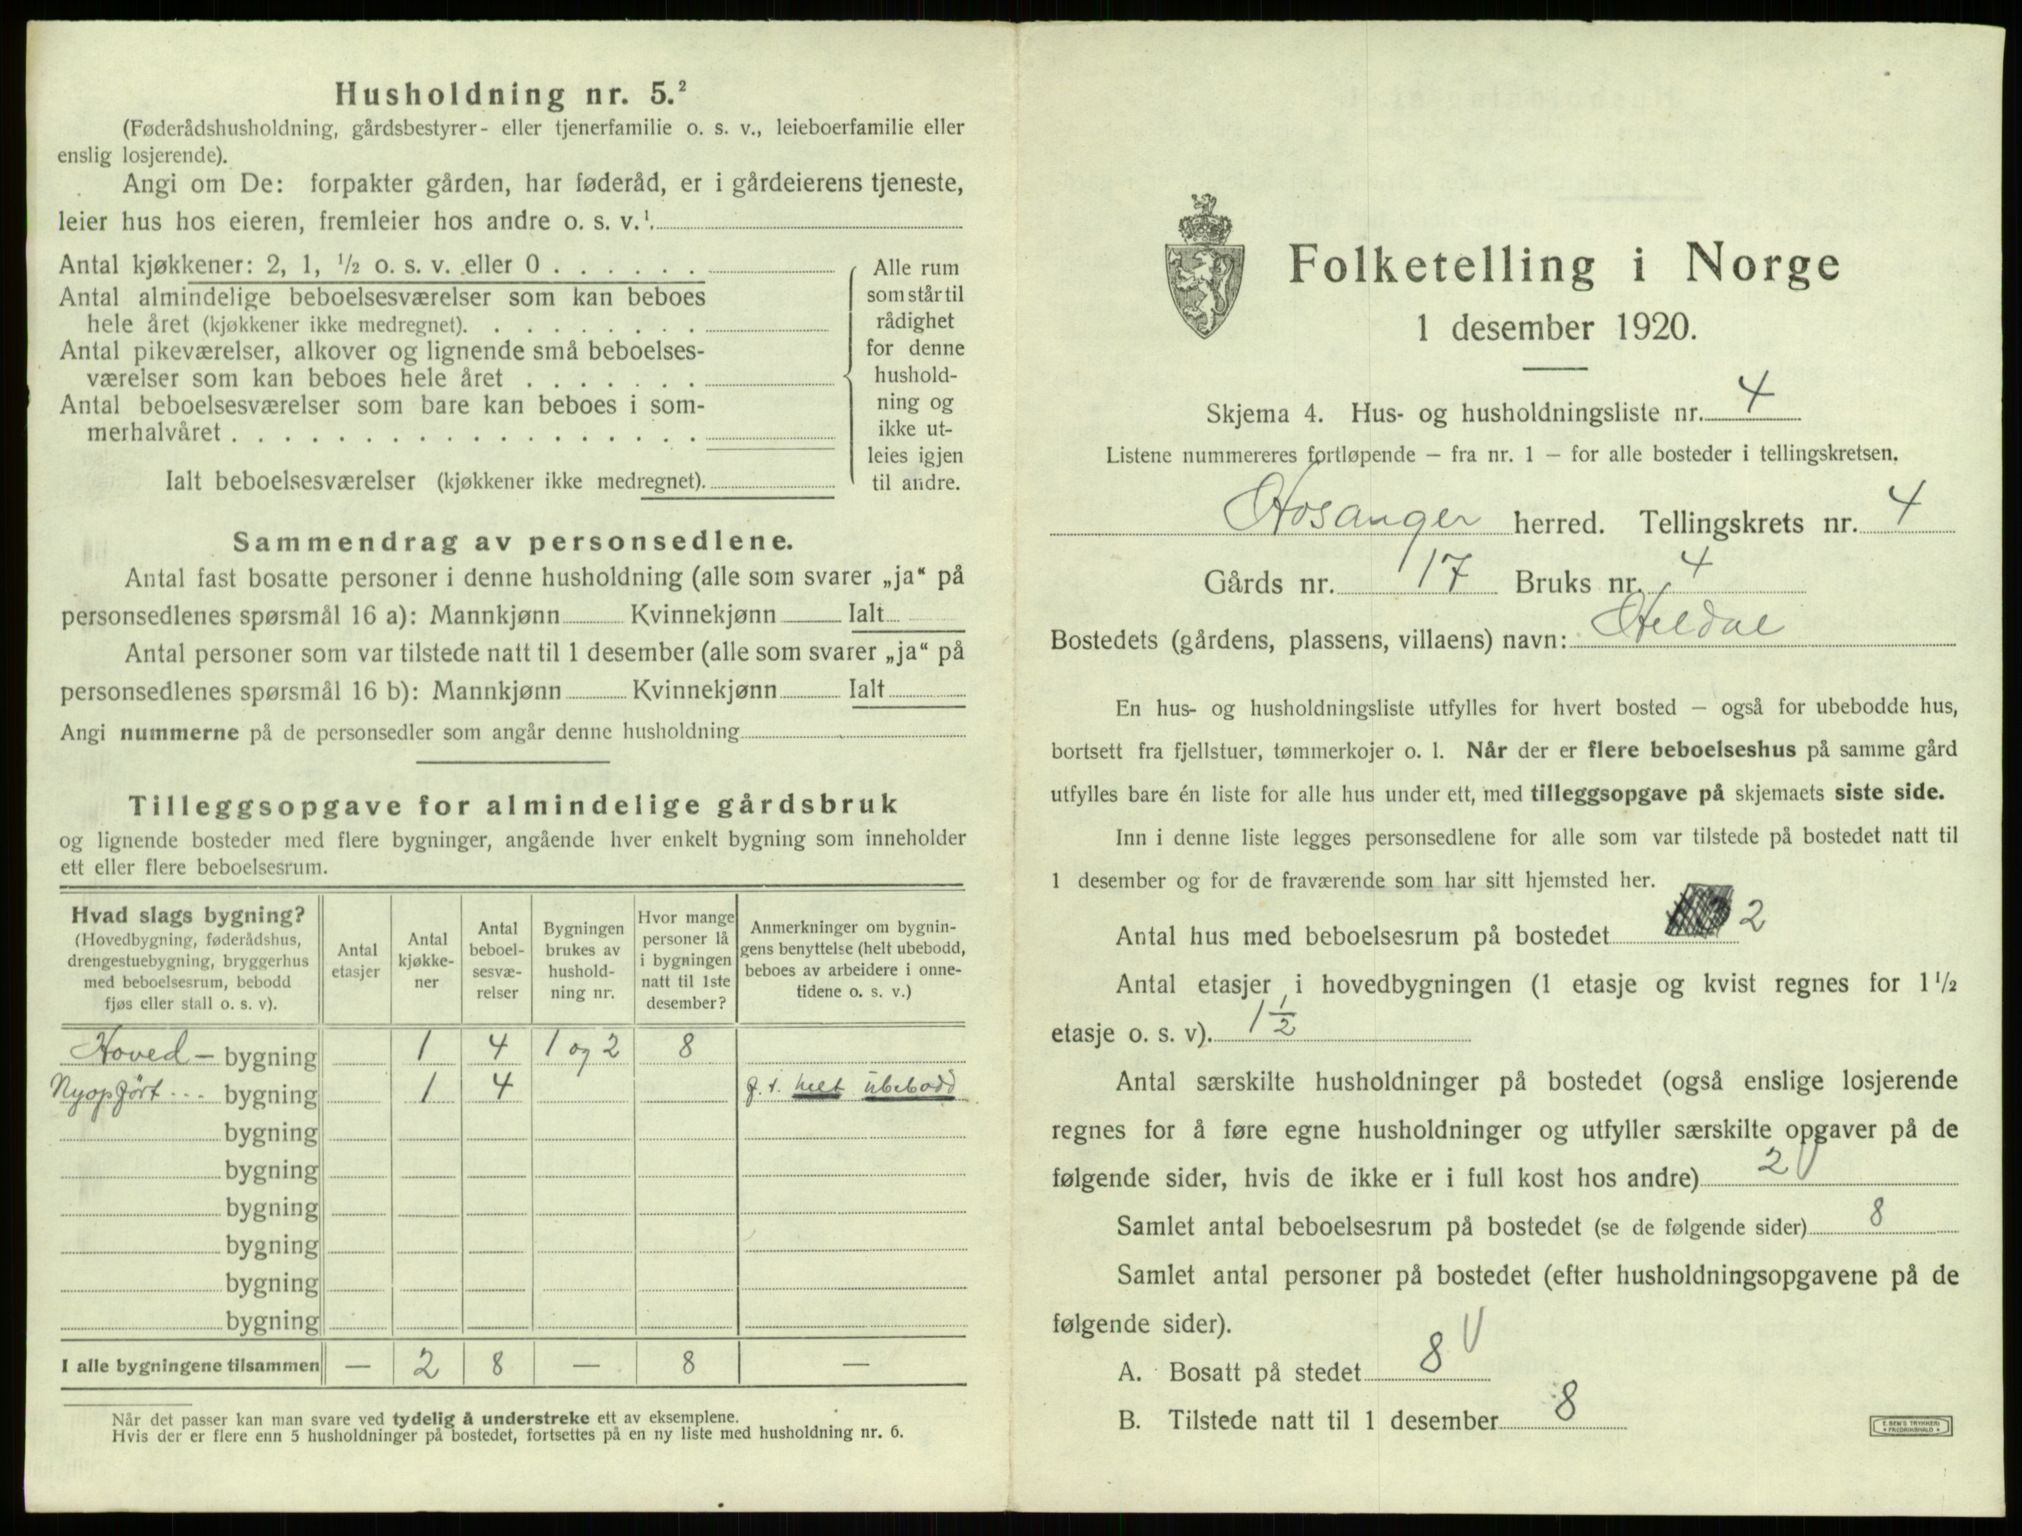 Husholdning nr. 5.²
(Føderådshusholdning, gårdsbestyrer- eller tjenerfamilie o. s. v., leieboerfamilie eller
enslig losjerende).
Angi om De: forpakter gården, har føderåd, er i gårdeierens tjeneste,
leier hus hos eieren, fremleier hos andre o. s. v.¹
Antal kjøkkener: 2, 1, ½ o. s. v. eller 0
Antal almindelige beboelsesværelser som kan beboes
hele året (kjøkkener ikke medregnet)
Antal pikeværelser, alkover og lignende små beboelses-
værelser som kan beboes hele året
Antal beboelsesværelser som bare kan beboes i som-
merhalvåret
Ialt beboelsesværelser (kjøkkener ikke medregnet)
Alle rum
som står til
rådighet
for denne
hushold-
ning og
ikke ut-
leies igjen
til andre.
Sammendrag av personsedlene.
Antal fast bosatte personer i denne husholdning (alle som svarer „ja“ på
personsedlenes spørsmål 16 a): Mannkjønn Kvinnekjønn Ialt
Antal personer som var tilstede natt til 1 desember (alle som svarer „ja“ på
personsedlenes spørsmål 16 b): Mannkjønn Kvinnekjønn Ialt
Angi nummerne på de personsedler som angår denne husholdning
Tilleggsopgave for almindelige gårdsbruk
og lignende bosteder med flere bygninger, angående hver enkelt bygning som inneholder
ett eller flere beboelsesrum.
Hvad slags bygning?
(Hovedbygning, føderådshus,
drengestuebygning, bryggerhus
med beboelsesrum, bebodd
fjøs eller stall o. s. v).
Antal
etasjer
Antal
kjøkke-
ner
Antal
beboel-
sesvæ-
relser
Bygningen
brukes av
hushold-
ning nr.
Hvor mange
personer lå
i bygningen
natt til 1ste
desember?
Anmerkninger om bygnin-
gens benyttelse (helt ubebodd,
beboes av arbeidere i onne-
tidene o. s. v.)
Hoved - bygning 1 4 1 og 2 8
Nyopført bygning 1 4 f. t. helt ubebodd
bygning
bygning
bygning
bygning
bygning
bygning
I alle bygningene tilsammen — 2 8 — 8 —
Når det passer kan man svare ved tydelig å understreke ett av eksemplene.
Hvis der er flere enn 5 husholdninger på bostedet, fortsettes på en ny liste med husholdning nr. 6.
Folketelling i Norge
1 desember 1920.
Skjema 4. Hus- og husholdningsliste nr. 4
Listene nummereres fortløpende – fra nr. 1 – for alle bosteder i tellingskretsen.
Hosanger herred. Tellingskrets nr. 4
Gårds nr. 17 Bruks nr. 4
Bostedets (gårdens, plassens, villaens) navn: Heldal
En hus- og husholdningsliste utfylles for hvert bosted – også for ubebodde hus,
bortsett fra fjellstuer, tømmerkojer o. l. Når der er flere beboelseshus på samme gård
utfylles bare én liste for alle hus under ett, med tilleggsopgave på skjemaets siste side.
Inn i denne liste legges personsedlene for alle som var tilstede på bostedet natt til
1 desember og for de fraværende som har sitt hjemsted her.
Antal hus med beboelsesrum på bostedet 2
Antal etasjer i hovedbygningen (1 etasje og kvist regnes for 1½
etasje o. s. v). 1 ½
Antal særskilte husholdninger på bostedet (også enslige losjerende
regnes for å føre egne husholdninger og utfyller særskilte opgaver på de
følgende sider, hvis de ikke er i full kost hos andre) 2
Samlet antal beboelsesrum på bostedet (se de følgende sider) 8
Samlet antal personer på bostedet (efter husholdningsopgavene på de
følgende sider).
A. Bosatt på stedet 8
B. Tilstede natt til 1 desember 8
E. SEM'S TRYKKERI
FREDRIKSHALD